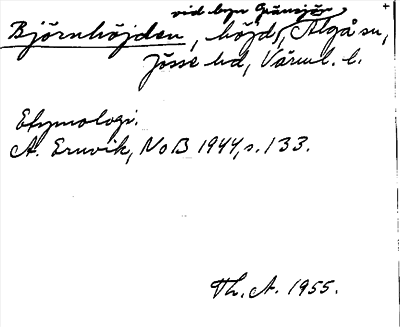 vid byn Gränsjön
Björnhöjden, höjd, Älgå sn,
Jösse hd, Värml. l.
Etymologi.
A. Ernvik, NoB 1944, s. 133.
Th. A. 1955.